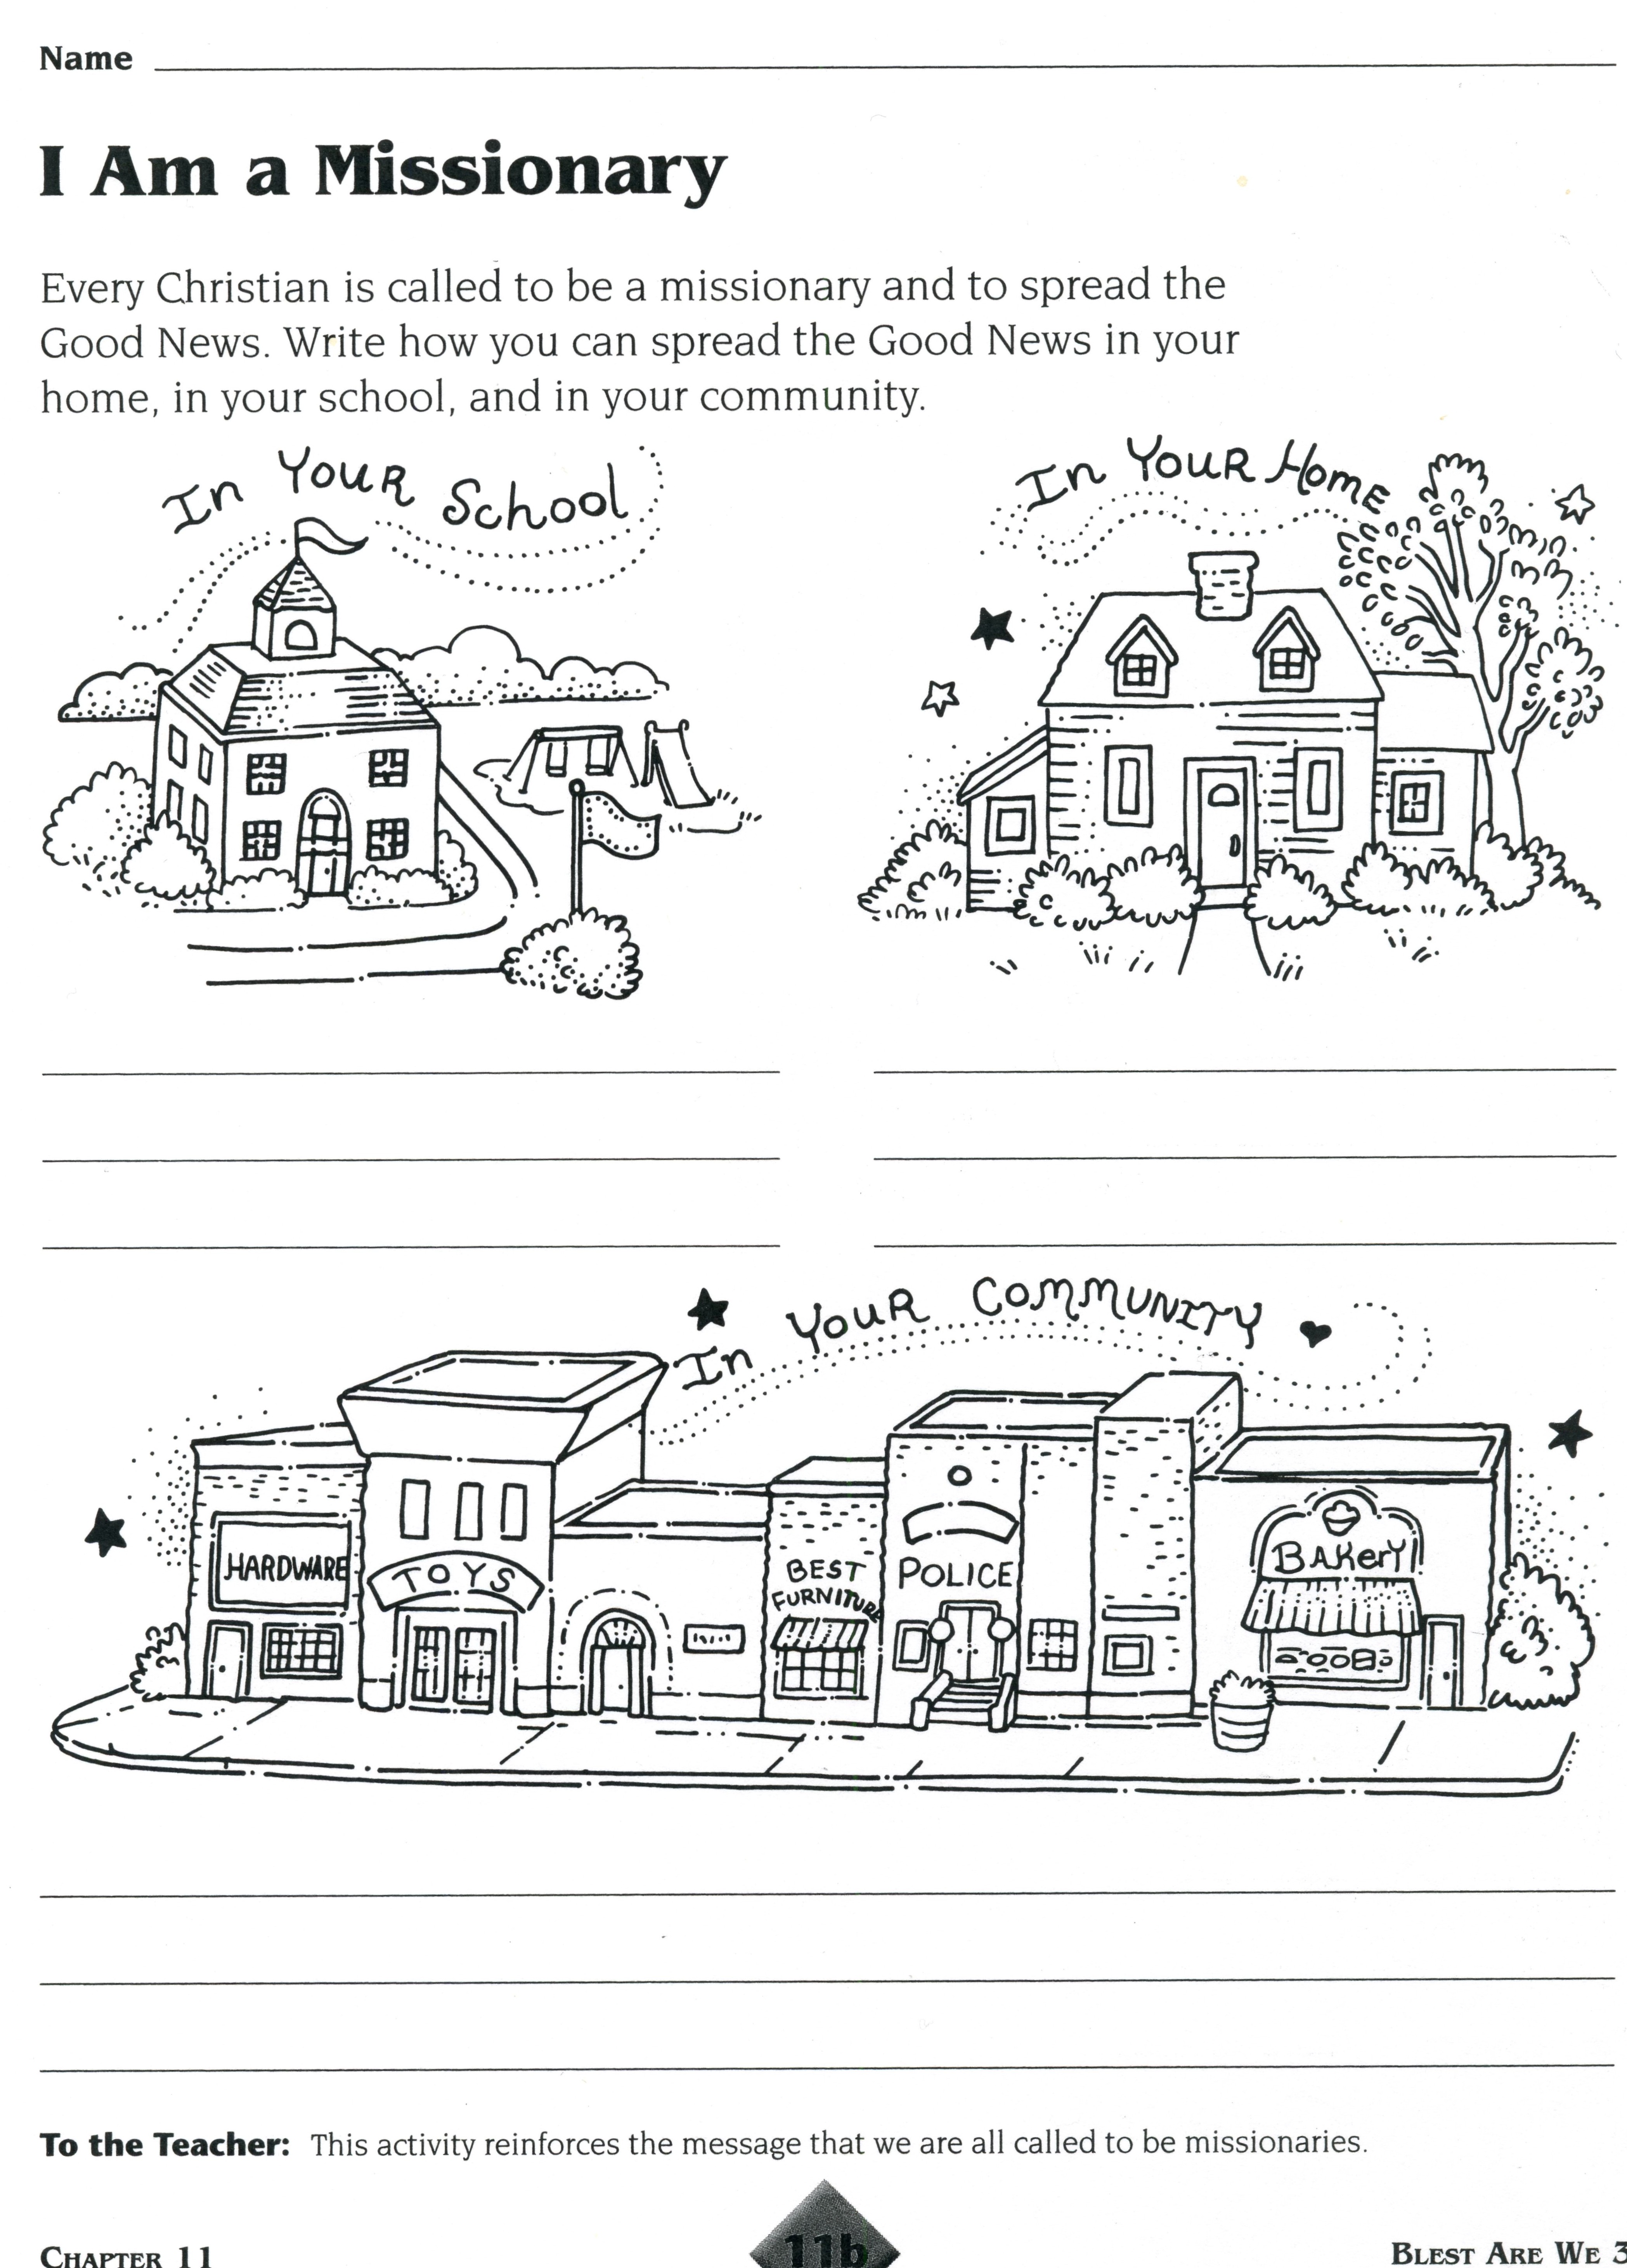 Name
I Am a Missionary
Every Christian is called to be a missionary and to spread the
Good News. Write how you can spread the Good News in your
home, in your school, and in your community.
In Your School
In Your Home
In Your Community
HARDWARE
TOYS
BEST
FURNITURE
POLICE
BAKerY
To the Teacher: This activity reinforces the message that we are all called to be missionaries.
CHAPTER 11
11b
BLEST ARE WE 3